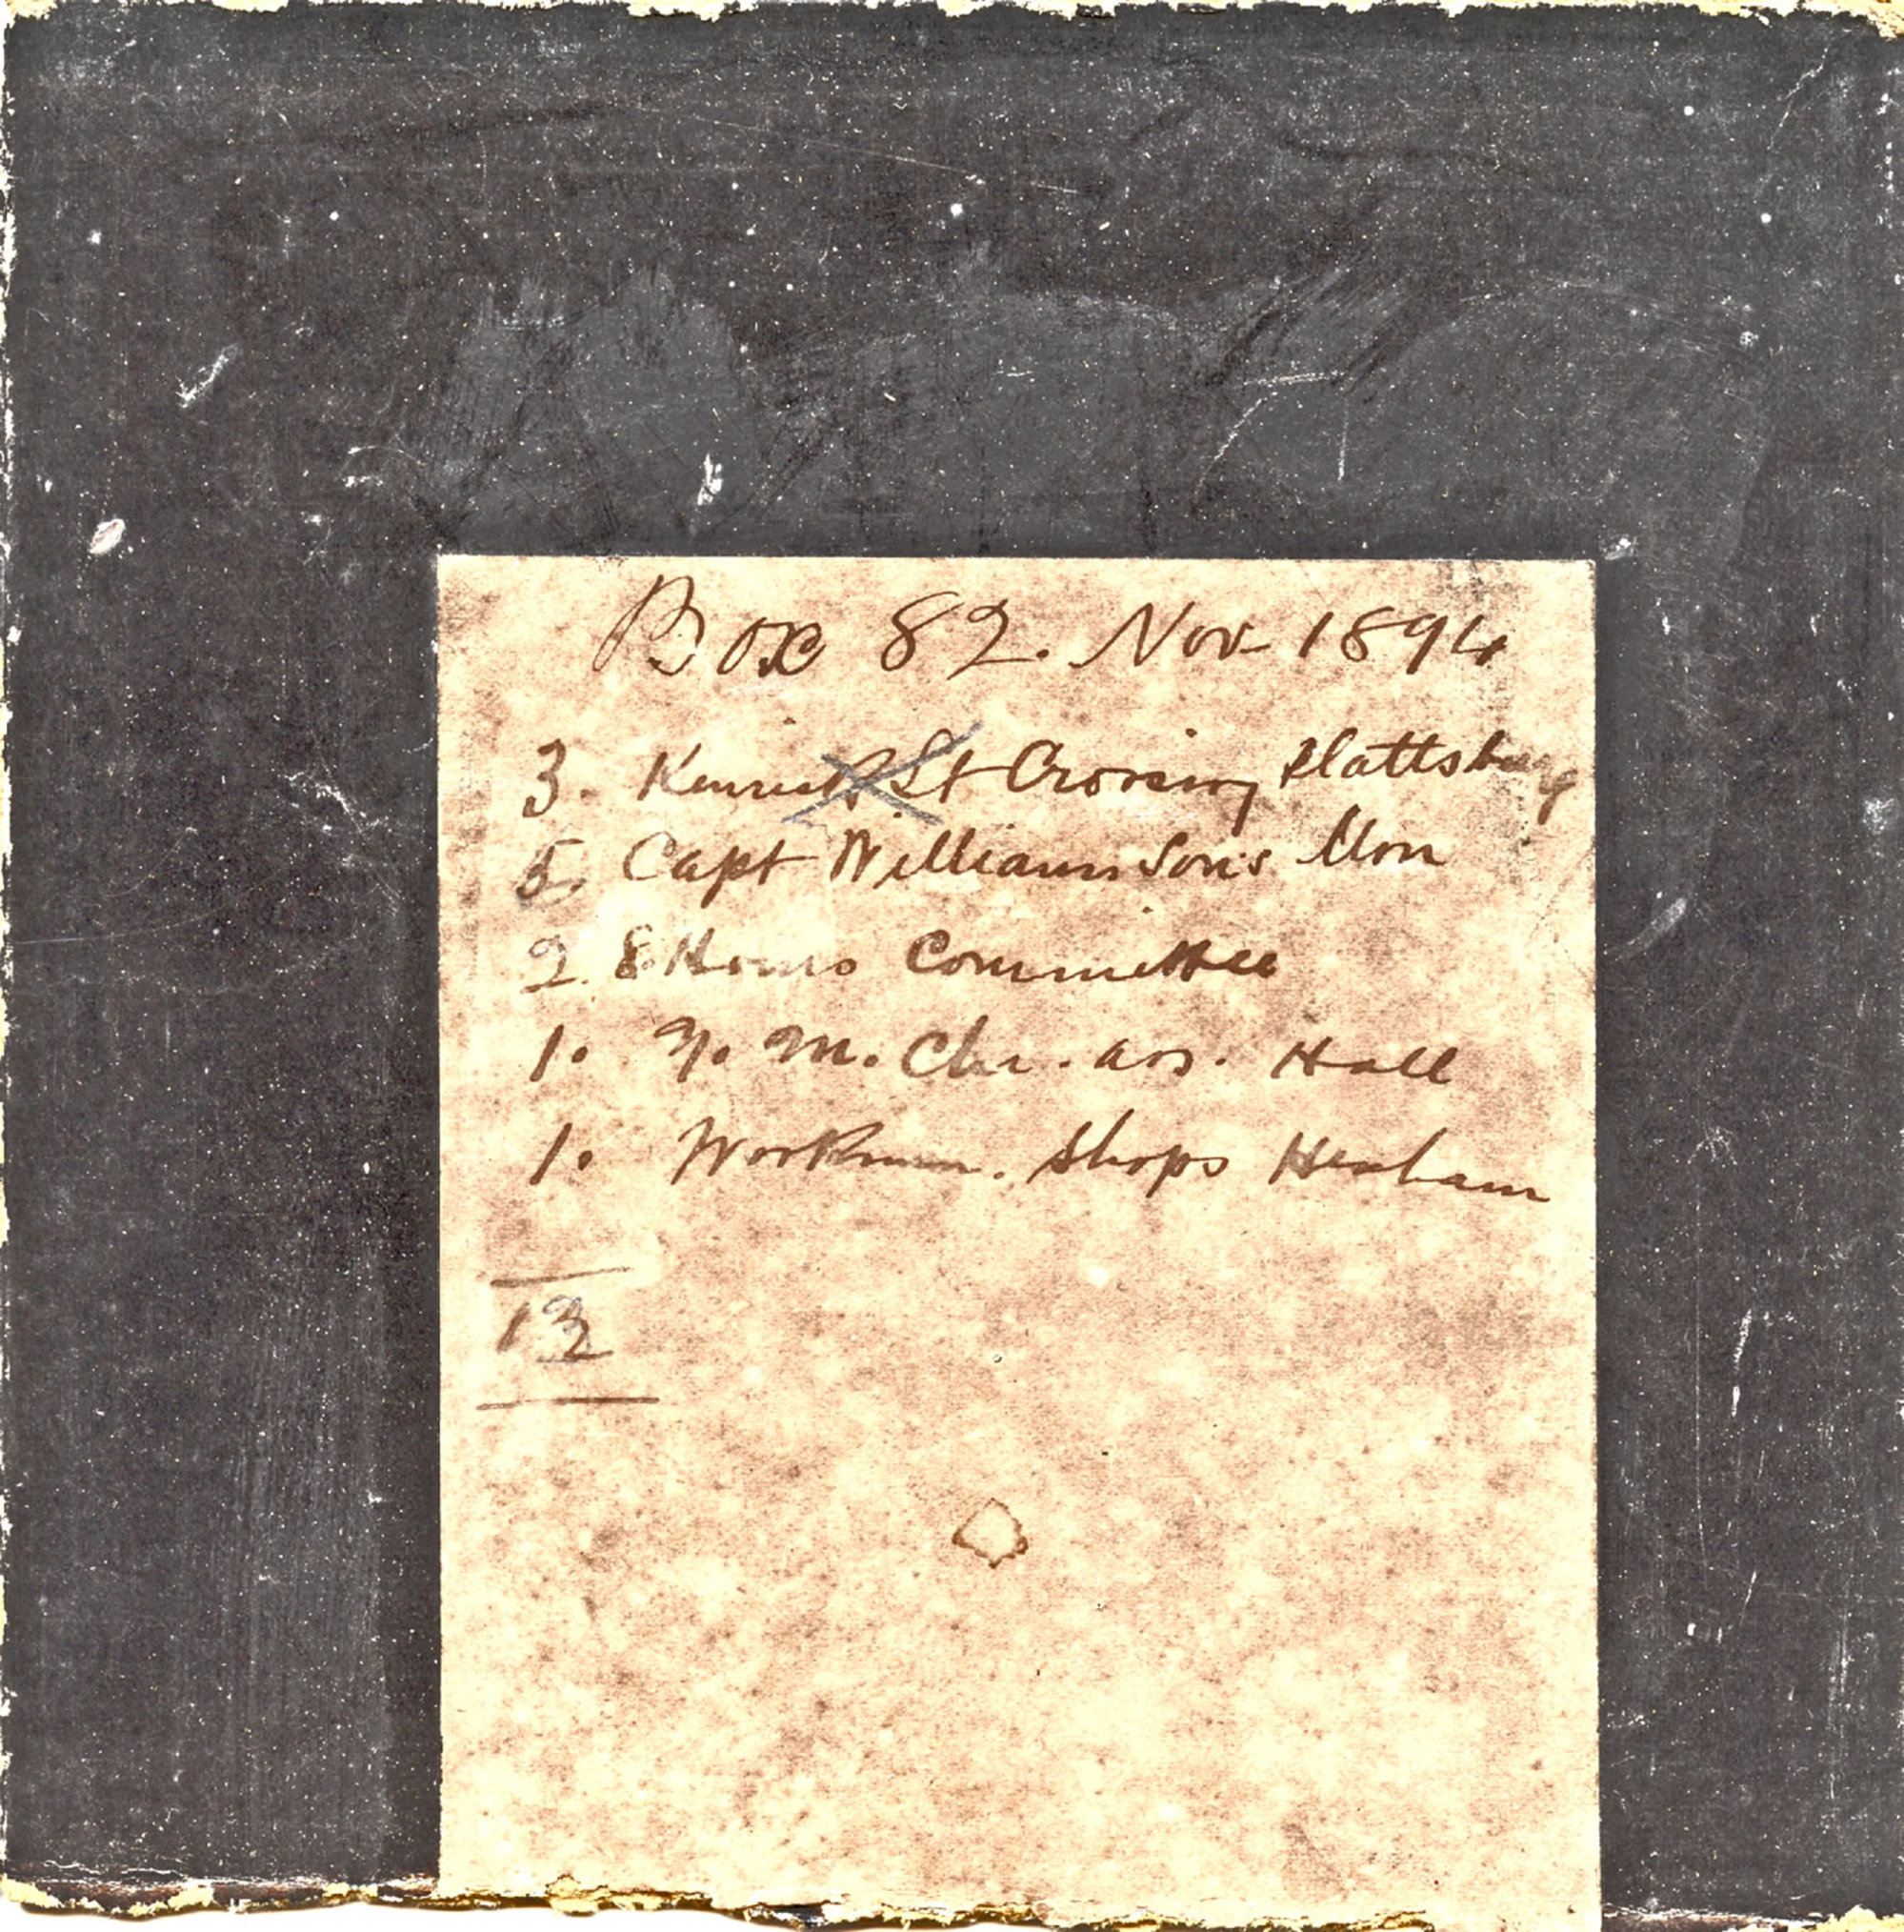 Box 82. Nov 1894
3. Kenrick St Crossing Plattsburg
5. Capt Williamson's Mon
2. 8 Hours Committee
1. Y. M. Chr. Ass. Hall
1. Workmen. Shops Hexham
12